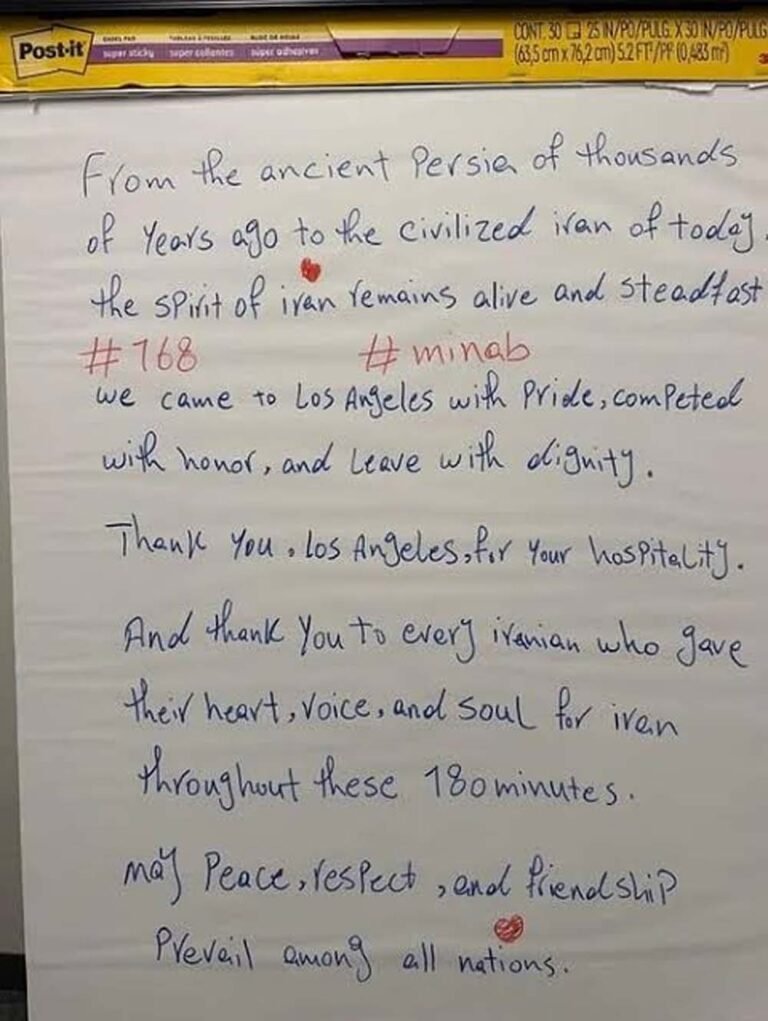 Post-it
EASEL PAD TABLEAU À FEUILLES BLOC DE HOJAS
super sticky super collantes súper adhesivas
CONT. 30 25 IN/PO/PULG. X 30 IN/PO/PULG
(63,5 cm x 76,2 cm) 5.2 FT²/PI² (0,483 m²)
From the ancient Persia of thousands
of years ago to the civilized iran of today,
the spirit of iran remains alive and steadfast
#168 #minab
we came to Los Angeles with Pride, competed
with honor, and Leave with dignity.
Thank you, Los Angeles, for your hospitality.
And thank you to every iranian who gave
their heart, voice, and soul for iran
throughout these 180 minutes.
may Peace, respect, and friendship
Prevail among all nations.